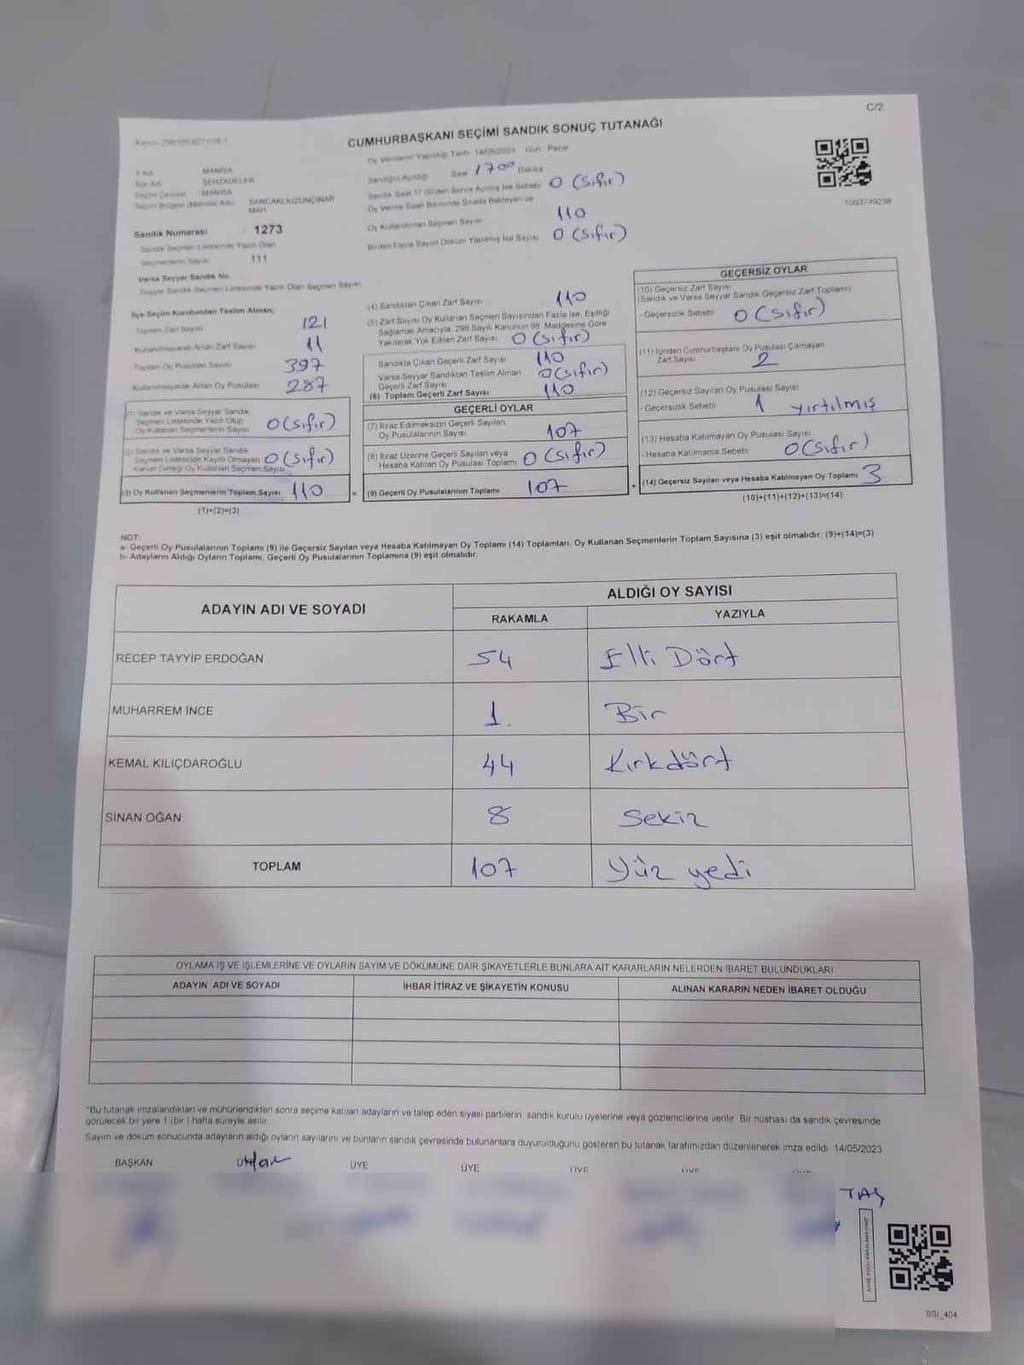 C/2
CUMHURBAŞKANI SEÇİMİ SANDIK SONUÇ TUTANAĞI
Oy Vermenin Yapıldığı Tarih 14/05/2023 Gün Pazar
İl Adı MANİSA
İlçe Adı ŞEHZADELER
Seçim Çevresi MANİSA
SANCAKLIUZUNÇINAR
MAH
Sandık Numarası 1273
Sandık Seçmen Listesinde Yazılı Olan
Seçmenlerin Sayısı 111
Varsa Seyyar Sandık No
Seyyar Sandık Seçmen Listesinde Yazılı Olan Seçmen Sayısı
Sandığın Açıldığı Saat 17 00 Dakika
Sandık Saat 17:00'den Sonra Açılmış İse Sebebi 0 (Sıfır)
Oy Verme Saati Bitiminde Sırada Bekleyen ve
Oy Kullandırılan Seçmen Sayısı 110
Birden Fazla Sayım Döküm Yapılmış İse Sayısı 0 (Sıfır)
1093749298
İlçe Seçim Kurulundan Teslim Alınan;
Toplam Zarf Sayısı 121
Kullanılmayarak Artan Zarf Sayısı 11
Toplam Oy Pusulası Sayısı 397
Kullanılmayarak Artan Oy Pusulası 287
(1) Sandık ve Varsa Seyyar Sandık
Seçmen Listesinde Yazılı Olup
Oy Kullanan Seçmenlerin Sayısı 0 (Sıfır)
(2) Sandık ve Varsa Seyyar Sandık
Seçmen Listesinde Kayıtlı Olmayan
Kanun Gereği Oy Kullanan Seçmen Sayısı 0 (Sıfır)
(3) Oy Kullanan Seçmenlerin Toplam Sayısı 110
(1)+(2)=(3)
(4) Sandıktan Çıkan Zarf Sayısı 110
(5) Zarf Sayısı Oy Kullanan Seçmen Sayısından Fazla İse, Eşitliği
Sağlamak Amacıyla, 298 Sayılı Kanunun 98. Maddesine Göre
Yakılarak Yok Edilen Zarf Sayısı 0 (Sıfır)
Sandıkta Çıkan Geçerli Zarf Sayısı 110
Varsa Seyyar Sandıktan Teslim Alınan
Geçerli Zarf Sayısı 0 (Sıfır)
(6) Toplam Geçerli Zarf Sayısı 110
GEÇERLİ OYLAR
(7) İtiraz Edilmeksizin Geçerli Sayılan
Oy Pusulalarının Sayısı 107
(8) İtiraz Üzerine Geçerli Sayılan veya
Hesaba Katılan Oy Pusulası Toplamı 0 (Sıfır)
= (9) Geçerli Oy Pusulalarının Toplamı 107
GEÇERSİZ OYLAR
(10) Geçersiz Zarf Sayısı
(Sandık ve Varsa Seyyar Sandık Geçersiz Zarf Toplamı)
- Geçersizlik Sebebi 0 (Sıfır)
(11) İçinden Cumhurbaşkanı Oy Pusulası Çıkmayan
Zarf Sayısı 2
(12) Geçersiz Sayılan Oy Pusulası Sayısı
- Geçersizlik Sebebi 1 yırtılmış
(13) Hesaba Katılmayan Oy Pusulası Sayısı
- Hesaba Katılmama Sebebi 0 (Sıfır)
+ (14) Geçersiz Sayılan veya Hesaba Katılmayan Oy Toplamı 3
(10)+(11)+(12)+(13)=(14)
NOT:
a- Geçerli Oy Pusulalarının Toplamı (9) ile Geçersiz Sayılan veya Hesaba Katılmayan Oy Toplamı (14) Toplamları, Oy Kullanan Seçmenlerin Toplam Sayısına (3) eşit olmalıdır. (9)+(14)=(3)
b- Adayların Aldığı Oyların Toplamı, Geçerli Oy Pusulalarının Toplamına (9) eşit olmalıdır.
ADAYIN ADI VE SOYADI ALDIĞI OY SAYISI
RAKAMLA YAZIYLA
RECEP TAYYİP ERDOĞAN 54 Elli Dört
MUHARREM İNCE 1. Bir
KEMAL KILIÇDAROĞLU 44 Kırkdört
SİNAN OĞAN 8 Sekiz
TOPLAM 107 Yüz yedi
OYLAMA İŞ VE İŞLEMLERİNE VE OYLARIN SAYIM VE DÖKÜMÜNE DAİR ŞİKAYETLERLE BUNLARA AİT KARARLARIN NELERDEN İBARET BULUNDUKLARI
ADAYIN ADI VE SOYADI İHBAR İTİRAZ VE ŞİKAYETİN KONUSU ALINAN KARARIN NEDEN İBARET OLDUĞU
"Bu tutanak imzalandıktan ve mühürlendikten sonra seçime katılan adayların ve talep eden siyasi partilerin sandık kurulu üyelerine veya gözlemcilerine verilir. Bir nüshası da sandık çevresinde
görülecek bir yere 1 (bir) hafta süreyle asılır
Sayım ve döküm sonucunda adayların aldığı oyların sayılarını ve bunların sandık çevresinde bulunanlara duyurulduğunu gösteren bu tutanak tarafımızdan düzenlenerek imza edildi. 14/05/2023
BAŞKAN ÜYE ÜYE ÜYE ÜYE
TAŞ
SSİ_404